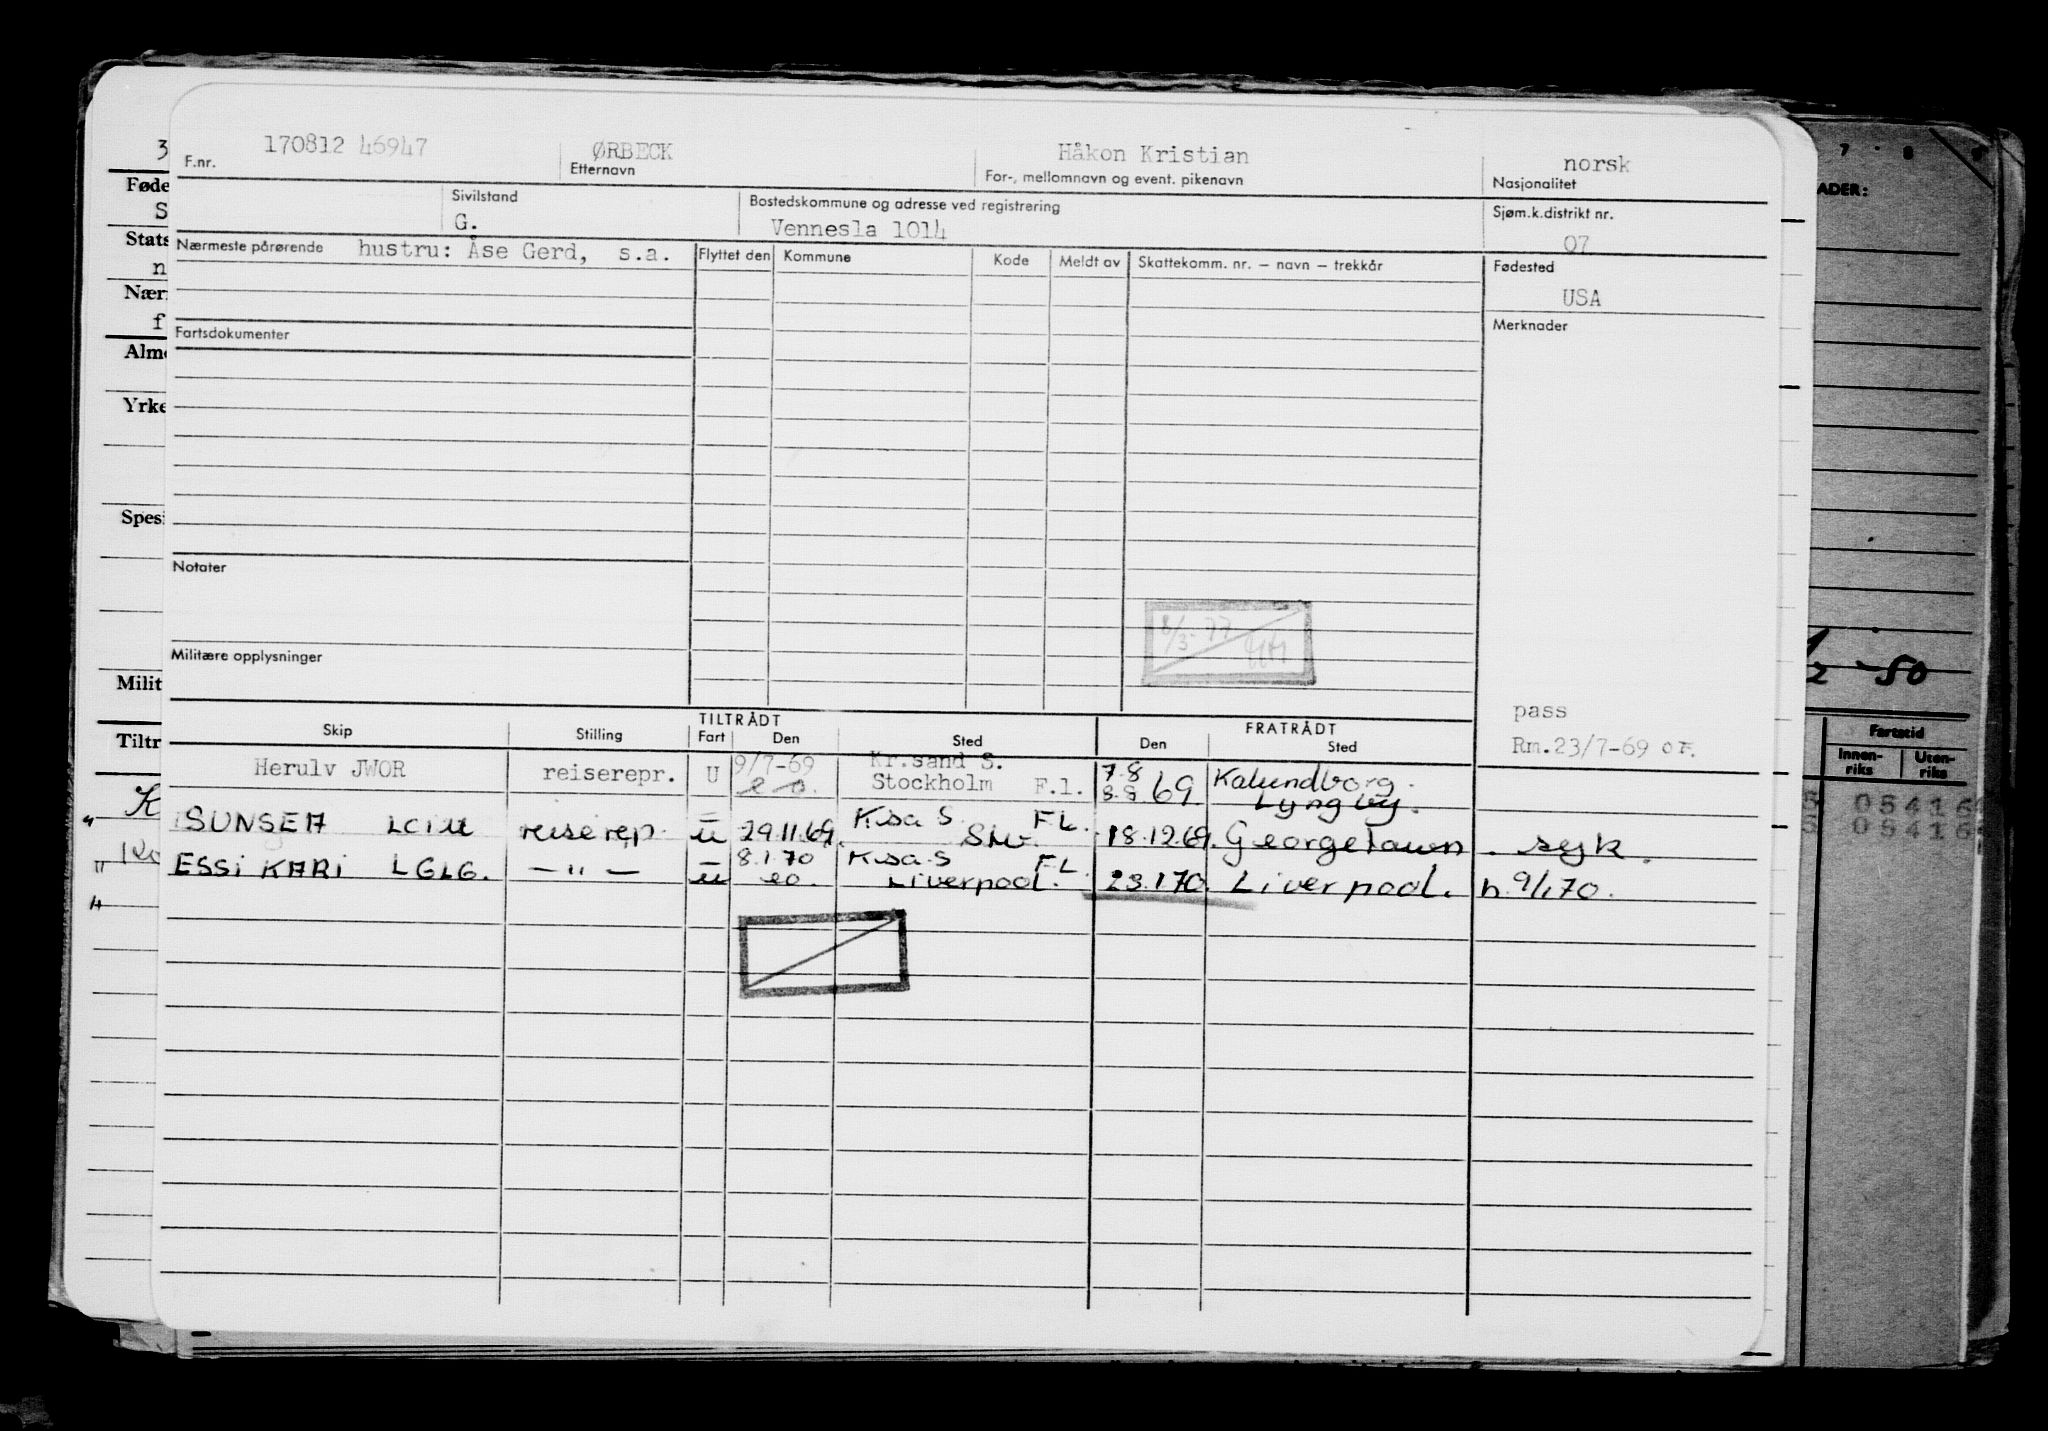 170812 46947 ØRBECK Håkon Kristian norsk
F.nr. Etternavn For-, mellomnavn og event. pikenavn Nasjonalitet
Sivilstand Bostedskommune og adresse ved registrering Sjøm.k.distrikt nr.
G. Vennesla 1014 07
Nærmeste pårørende hustru: Åse Gerd, s.a. Flyttet den Kommune Kode Meldt av Skattekomm. nr. – navn – trekkår Fødested
USA
Fartsdokumenter Merknader
Notater
Militære opplysninger
pass
Rm.23/7-69 OF.
TILTRÅDT FRATRÅDT
Skip Stilling Fart Den Sted Den Sted
Herulv JWOR reiserepr. U 9/7-69 Kr.sand S. 7.8 Kalundborg.
Stockholm F.l. 69 Lyngby.
SUNSEA reiserep. u 29.11.69. K.sa S. F.L. 18.12.69. Georgetown. sejk.
ESSI KARI LGLG. — " — u 8.1.70 K.sa.S F.L.
eo. Liverpool. 23.1.70. Liverpool. h. 9/1.70.
3
Føde
S
Stats
n
Nær
f
Alm
Yrke
Spesi
Milit
Tiltr
K
ADER:
7 8
-50
Fartstid
Innen-
riks
Uten-
riks